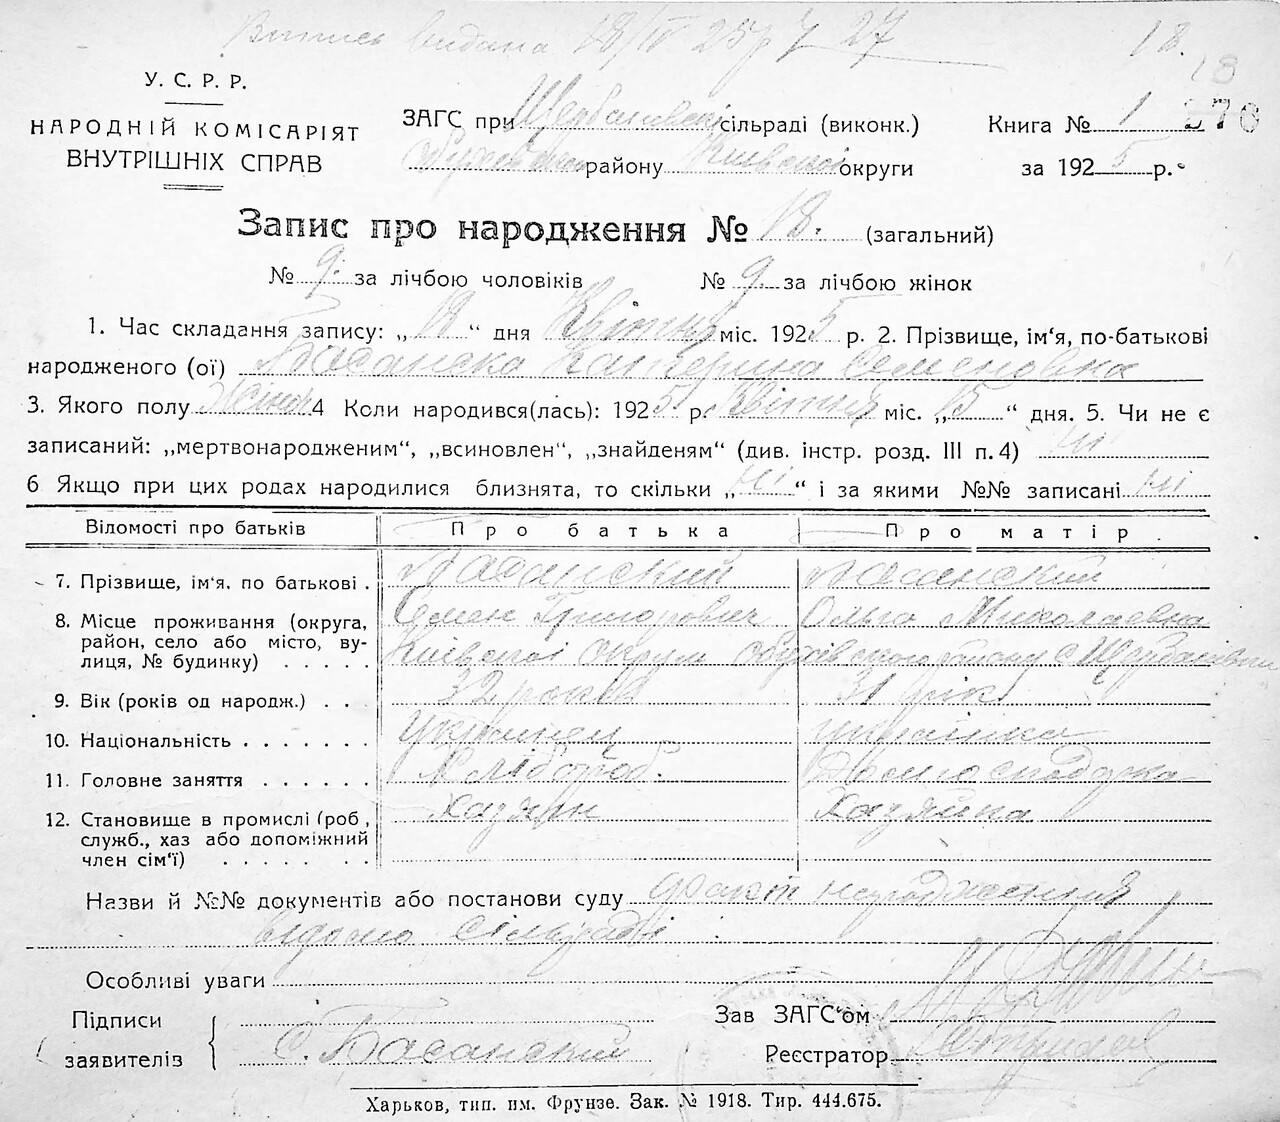 Витись видана 18/IV 25р № 27 18.
18
У. С. Р. Р.
НАРОДНІЙ КОМІСАРІЯТ
ВНУТРІШНІХ СПРАВ
ЗАГС при Щербанівскі сільраді (виконк.) Книга № 1 276
Обухівско району Київскої округи за 1925 р.
Запис про народження № 18. (загальний)
№ 9. за лічбою чоловіків № 9 за лічбою жінок
1. Час складання запису: „18“ дня Квітня міс. 1925 р. 2. Прізвище, ім‘я, по-батькові
народженого (ої) Басанска Катерина Семеновна
3. Якого полу Жіноч 4 Коли народився(лась): 1925 р. Квітня міс. „15“ дня. 5. Чи не є
записаний: „мертвонародженим“, „всиновлен“, „знайденям“ (див. інстр. розд. III п. 4) ні
6 Якщо при цих родах народилися близнята, то скільки „ні“ і за якими №№ записані ні
Відомості про батьків Про батька Про матір
7. Прізвище, ім‘я, по батькові . Басанский Басанский
Семен Григорович Ольга Миколаевна
8. Місце проживання (округа, район, село або місто, вулиця, № будинку) . . . . . Київскої округи Обухівского району с Щербанівки
9. Вік (років од народж.) . . . 32 років 31 рік
10. Національність . . . . . . . Українец українка
11. Головне заняття . . . . . . Хлібороб. Домогосподарка
12. Становище в промислі (роб, служб., хаз або допоміжний член сім‘ї) . . . . . . . Хазяїн Хазяйка
Назви й №№ документів або постанови суду факт народження
відомо сільраді
Особливі уваги
Підписи
заявителів С. Басанский
Зав ЗАГС‘ом
Реєстратор
Харьков, тип. им. Фрунзе. Зак. № 1918. Тир. 444.675.